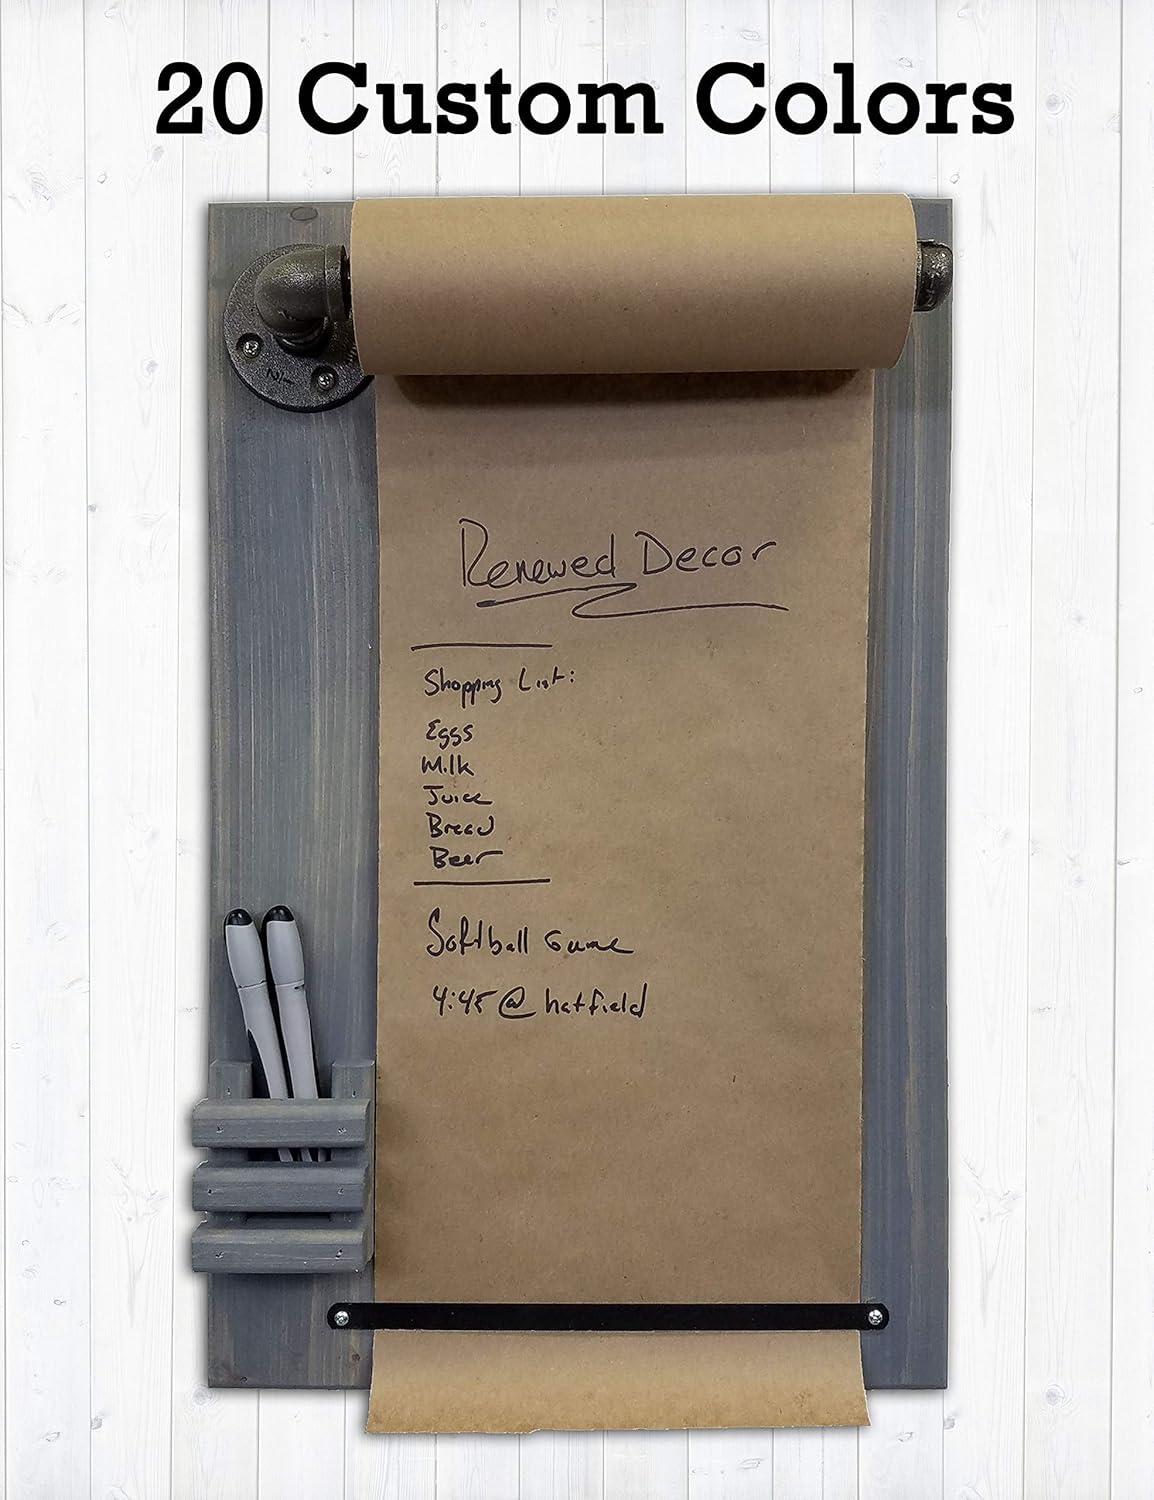 20 Custom Colors
Renewed Decor
Shopping List:
Eggs
Milk
Juice
Bread
Beer
Softball Game
4:45 @ hatfield